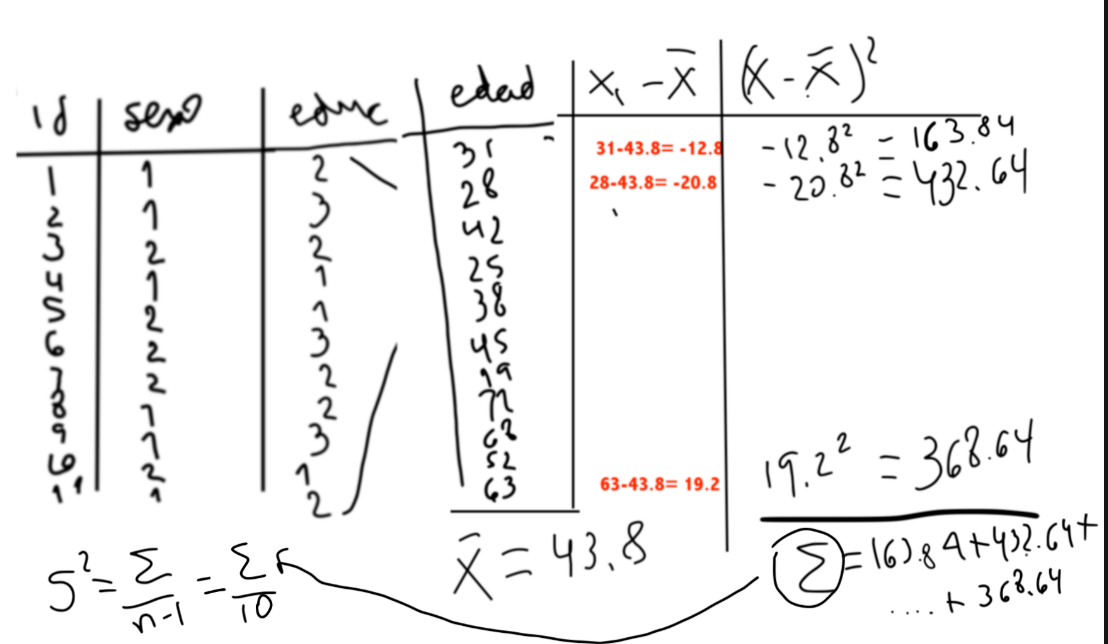 id sexo educ edad X₁ - X̄ (X - X̄)²
1 1 2 31 31-43.8= -12.8 -12.8² = 163.84
2 1 3 28 28-43.8= -20.8 -20.8² = 432.64
3 2 2 42
4 1 1 25
5 2 1 38
6 2 3 45
7 2 2 19
8 1 2
9 1 3
10 2 1 52
11 1 2 63 63-43.8= 19.2 19.2² = 368.64
X̄ = 43.8
S² = Σ/n-1 = Σ/10
Σ = 163.84+432.64+
....+ 368.64